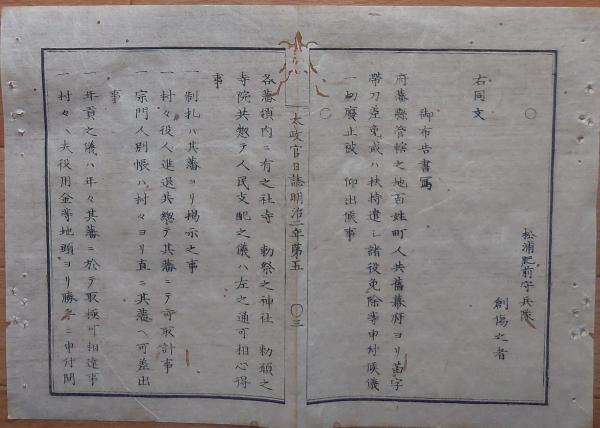 ○
松浦肥前守兵隊
創傷之者
右同文
御布告書寫
府藩縣管轄之地百姓町人共舊幕府ヨリ苗字
帶刀差免或ハ扶持遣シ諸役免除等申付候儀
一切廢止被 仰出候事
○
太政官日誌明治二年第五 ○三
各藩領内ニ有之社寺 勅祭之神社 勅願之
寺院共惣テ人民支配之儀ハ左之通可相心得
事
一 制札ハ其藩ヨリ掲示之事
一 村々役人進退共惣テ其藩ニテ可取計事
一 宗門人別帳ハ村々ヨリ直ニ其藩ヘ可差出
事
一 年貢之儀ハ年々其藩ニ於テ取極可相達事
一 村々ヘ夫役用金等地頭ヨリ勝手ニ申付間